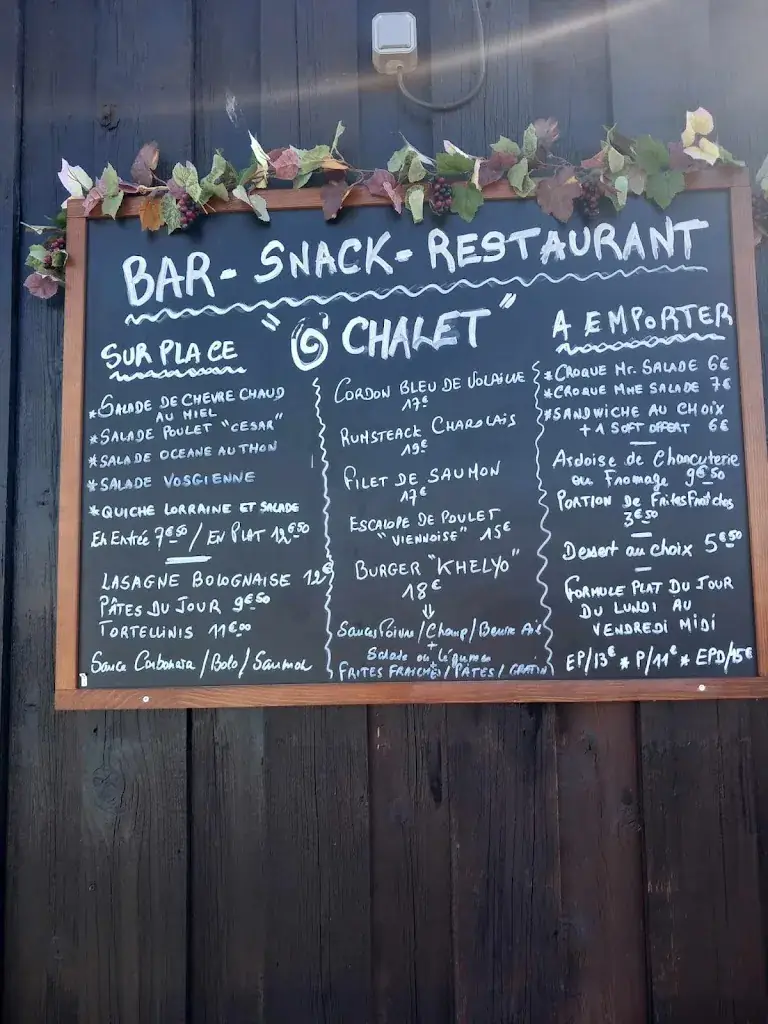 BAR - SNACK - RESTAURANT
"Ô CHALET"
SUR PLACE
*SALADE DE CHEVRE CHAUD
AU MIEL
*SALADE POULET "CESAR"
*SALADE OCEANE AU THON
*SALADE VOSGIENNE
*QUICHE LORRAINE ET SALADE
EN ENTRÉE 7€50 / EN PLAT 12€50
LASAGNE BOLOGNAISE 12€
PÂTES DU JOUR 9€50
TORTELLINIS 11€00
Sauce Carbonara / Bolo / Saumon
CORDON BLEU DE VOLAILLE
17€
RUMSTEACK CHAROLAIS
19€
FILET DE SAUMON
17€
ESCALOPE DE POULET
"VIENNOISE" 15€
BURGER "KHELYO"
18€
⇓
Sauces Poivre / Champ / Beurre Ail
+
Salade ou Légumes
FRITES FRAICHES / PÂTES / GRATIN
A EMPORTER
*CROQUE Mr. SALADE 6€
*CROQUE MME SALADE 7€
*SANDWICHE AU CHOIX
+ 1 SOFT OFFERT 6€
Ardoise de Charcuterie
ou Fromage 9€50
PORTION DE Frites Fraîches
3€50
Dessert au choix 5€50
FORMULE PLAT DU JOUR
DU LUNDI AU
VENDREDI MIDI
EP/13€ * P/11€ * EPD/15€